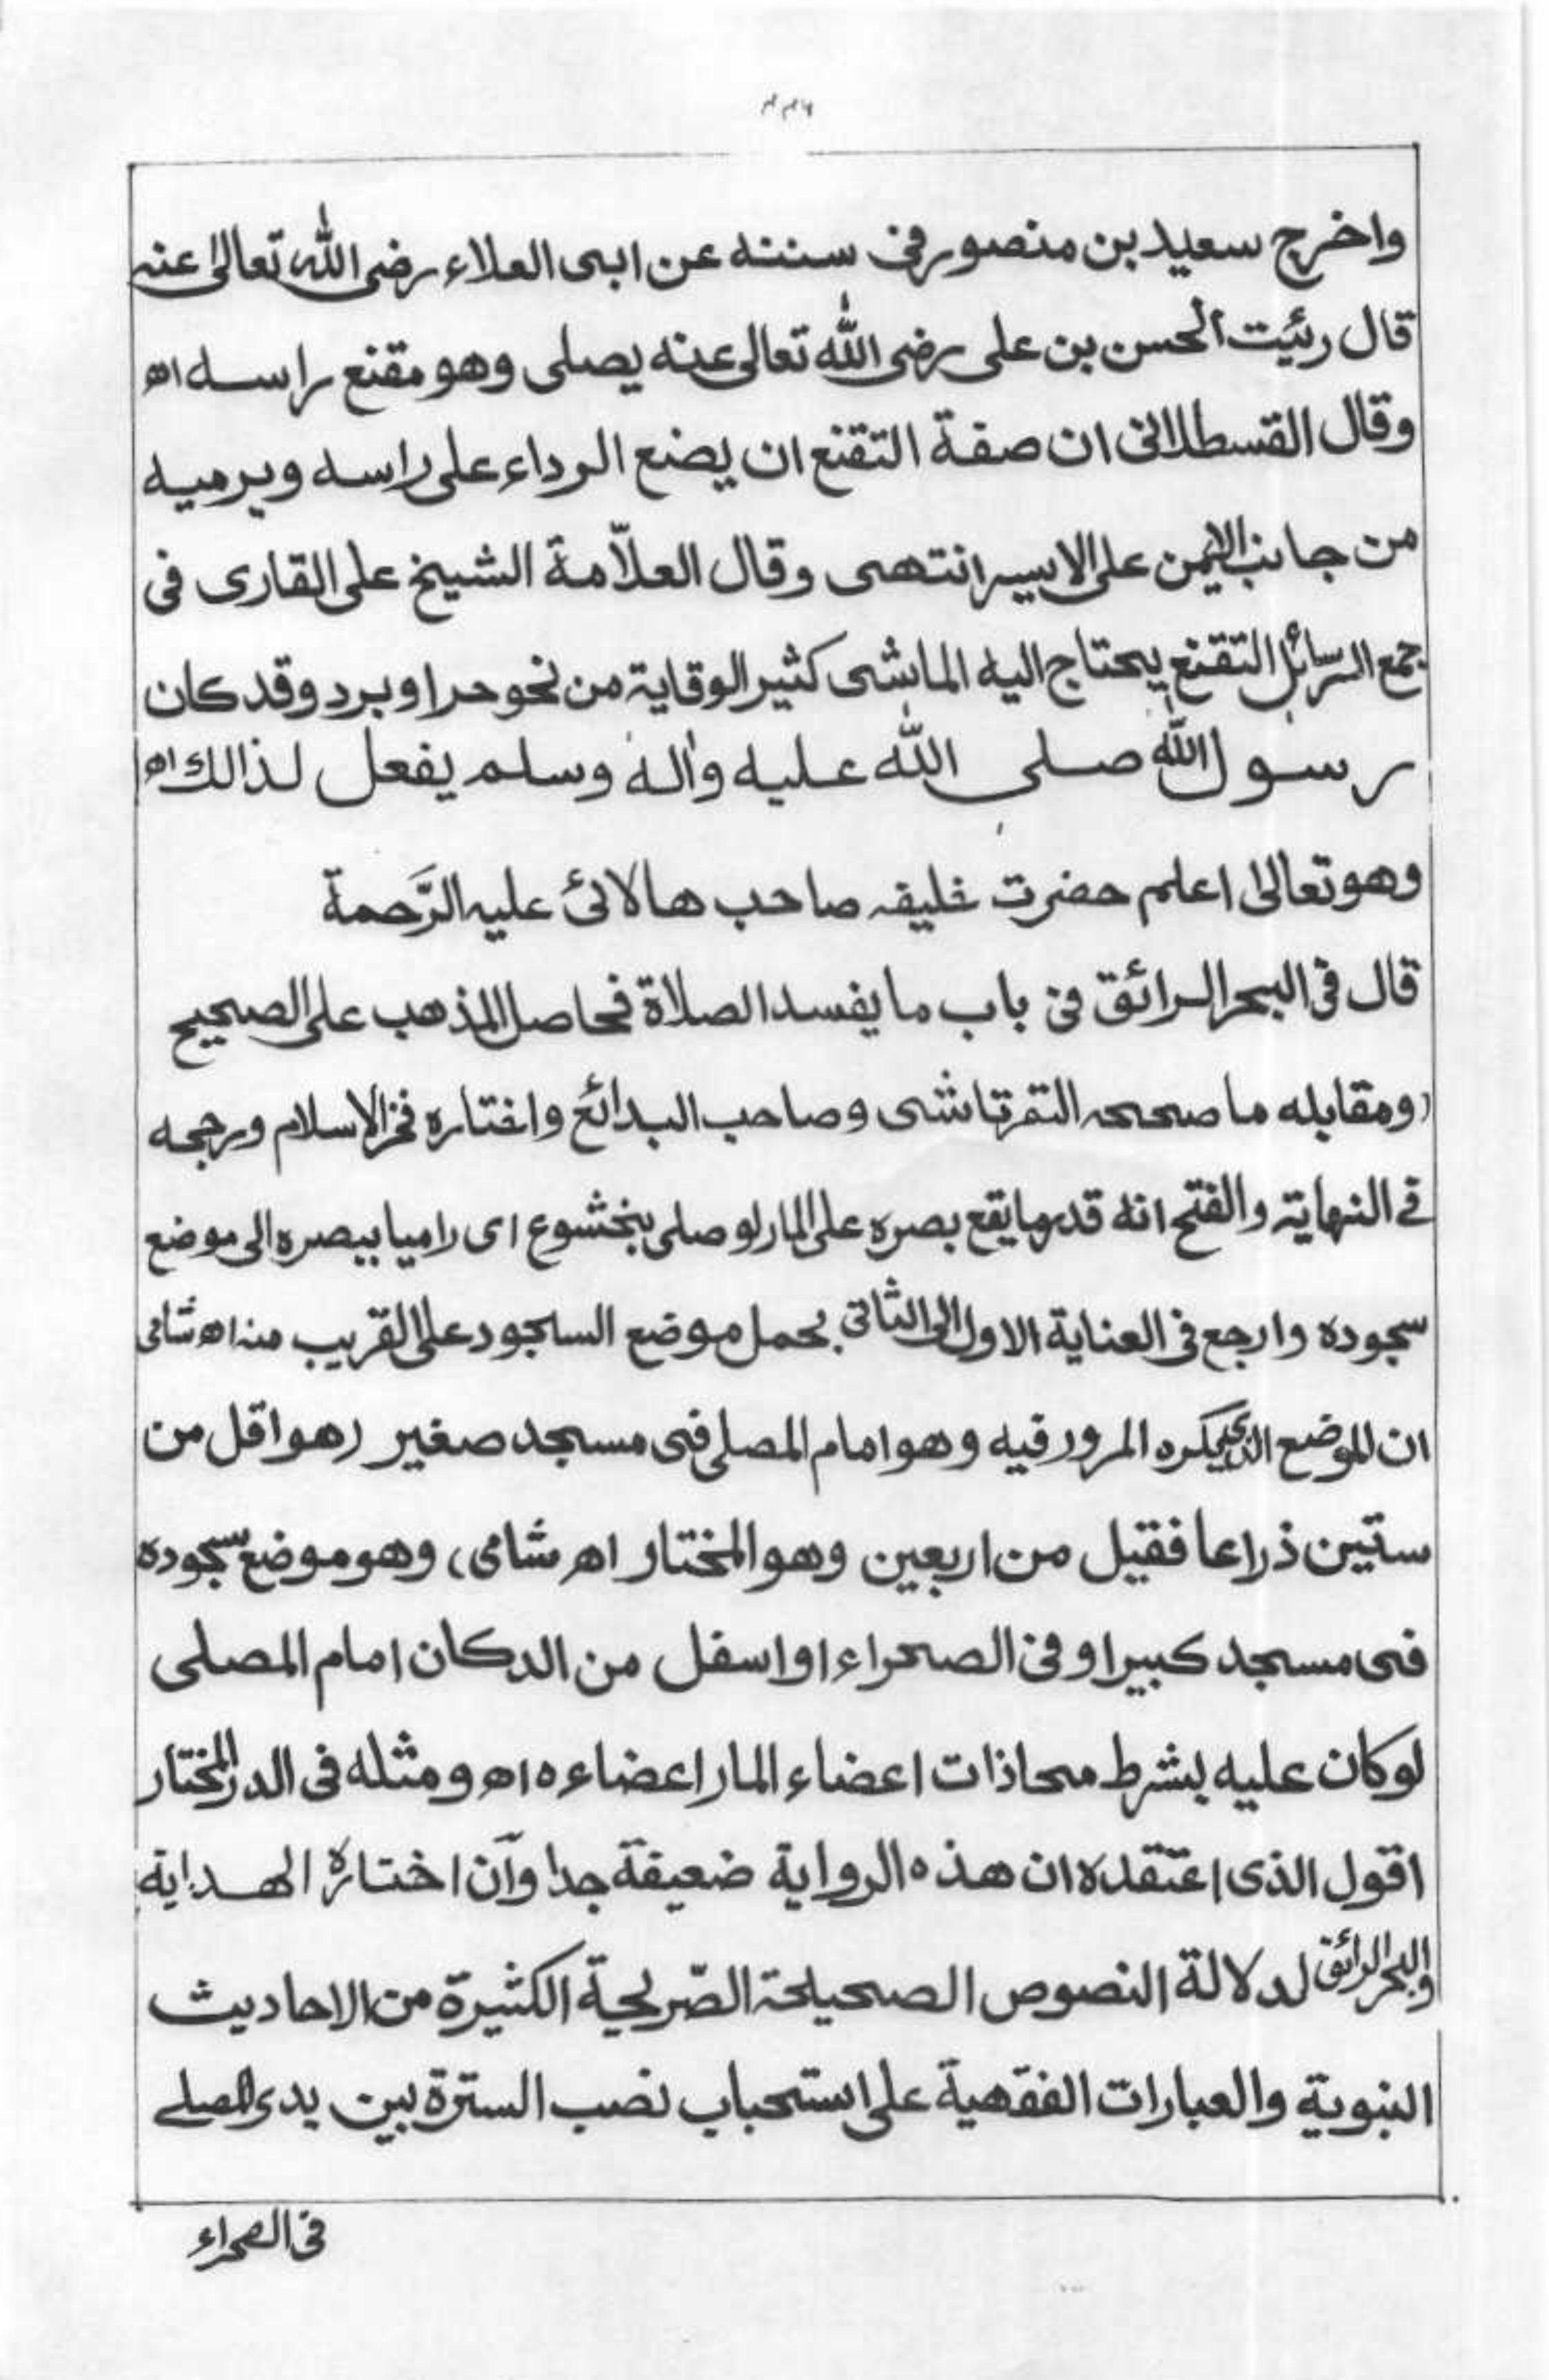 واخرج سعيد بن منصور فى سننه عن ابى العلاء رضى الله تعالى عنه
قال رئيت الحسن بن على رضى الله تعالى عنه يصلى وهو مقنع راسه اھ
وقال القسطلانى ان صفة التقنع ان يضع الرداء على راسه ويرميه
من جانب الايمن على الايسر انتهى وقال العلّامة الشيخ على القارى فى
جمع الرسائل التقنع يحتاج اليه الماشى كثير الوقاية من نحو حر او برد وقد كان
رسول الله صلى الله عليه واله وسلم يفعل لذالك اھ
وهو تعالى اعلم حضرت خليفه صاحب هالائى عليه الرَّحمة
قال فى البحر الرائق فى باب ما يفسد الصلاة فحاصل المذهب على الصحيح
(ومقابله ما صححه التمرتاشى وصاحب البدائع واختاره فخر الاسلام ورجحه
فى النهاية والفتح انه قدر ما يقع بصره على المار لو صلى بخشوع اى راميا ببصره الى موضع
سجوده وارجع فى العناية الاول الى الثانى بحمل موضع السجود على القريب منه اھ شامى
ان الموضع الذى يكره المرور فيه وهو امام المصلى فى مسجد صغير (هو اقل من
ستين ذراعا فقيل من اربعين وهو المختار اھ شامى) وهو موضع سجوده
فى مسجد كبير او فى الصحراء او اسفل من الدكان امام المصلى
لو كان عليه بشرط محاذات اعضاء المار اعضاءه اھ ومثله فى الدر المختار
اقول الذى اعتقده ان هذه الرواية ضعيفة جدا وان اختاره الهداية
والبحر الرائق لدلالة النصوص الصحيحة الصّريحة الكثيرة من الاحاديث
النبوية والعبارات الفقهية على استحباب نصب السترة بين يدى المصلے
فى الصحراء